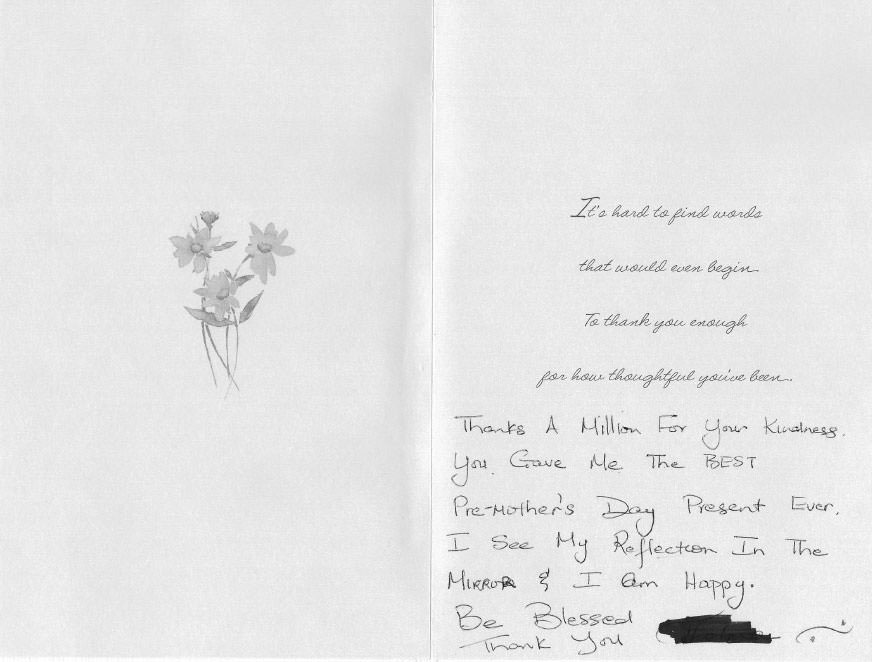 It's hard to find words
that would even begin
To thank you enough
for how thoughtful you've been.
Thanks A Million For Your Kindness.
You Gave Me The BEST
Pre-Mother's Day Present Ever.
I See My Reflection In The
Mirror & I am Happy.
Be Blessed
Thank You